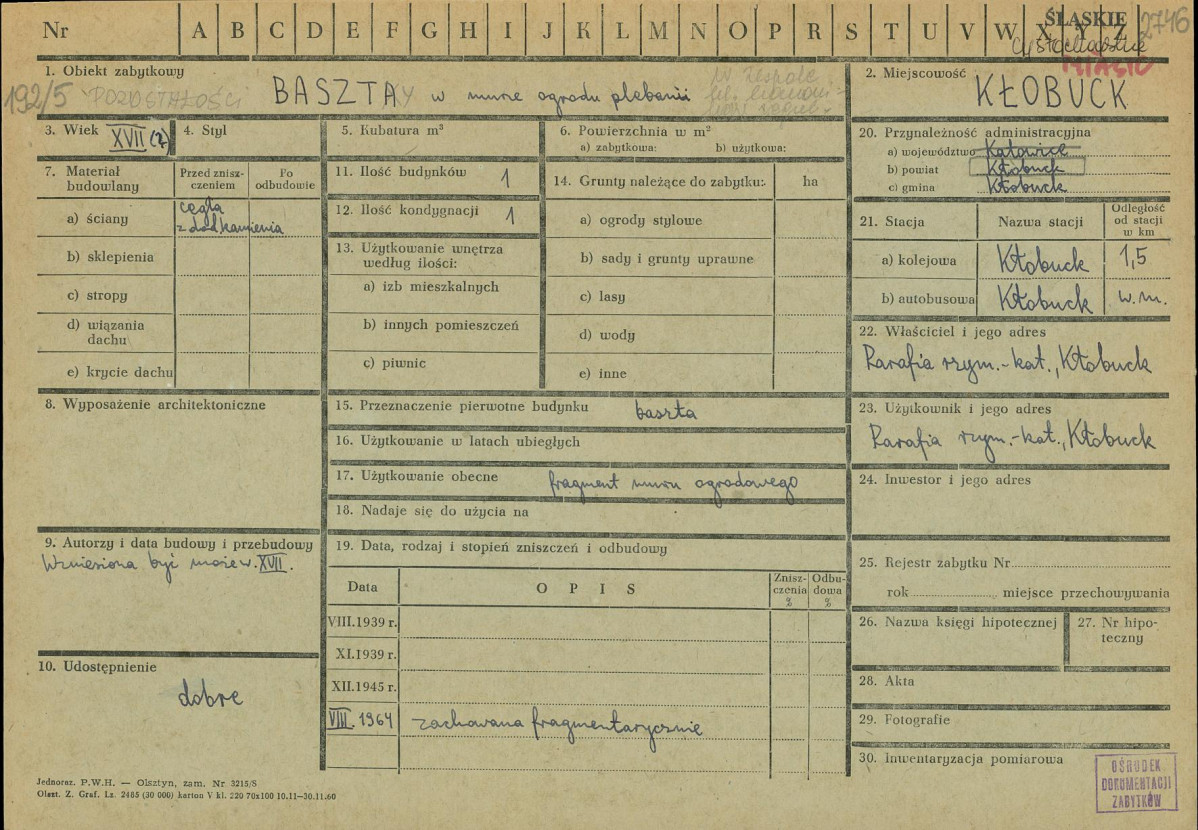 Nr A B C D E F G H I J K L M N O P R S T U V W X Y Z ŚLĄSKIE 2746
MIASTO
192/5
1. Obiekt zabytkowy
POZOSTAŁOŚCI BASZTAY w murze ogrodu plebanii
w zespole
2. Miejscowość
KŁOBUCK
3. Wiek XVII (?)
4. Styl
5. Kubatura m³
6. Powierzchnia w m²
a) zabytkowa: b) użytkowa:
7. Materiał budowlany
Przed zniszczeniem
Po odbudowie
a) ściany
cegła
z dod. kamienia
b) sklepienia
c) stropy
d) wiązania dachu
e) krycie dachu
8. Wyposażenie architektoniczne
9. Autorzy i data budowy i przebudowy
Wzniesiona być może w. XVII.
10. Udostępnienie
dobre
11. Ilość budynków 1
12. Ilość kondygnacji 1
13. Użytkowanie wnętrza
według ilości:
a) izb mieszkalnych
b) innych pomieszczeń
c) piwnic
14. Grunty należące do zabytku: ha
a) ogrody stylowe
b) sady i grunty uprawne
c) lasy
d) wody
e) inne
15. Przeznaczenie pierwotne budynku baszta
16. Użytkowanie w latach ubiegłych
17. Użytkowanie obecne fragment muru ogrodowego
18. Nadaje się do użycia na
19. Data, rodzaj i stopień zniszczeń i odbudowy
Data OPIS Zniszczenia % Odbudowa %
VIII.1939 r.
XI.1939 r.
XII.1945 r.
VIII.1964 zachowana fragmentarycznie
20. Przynależność administracyjna
a) województwo Katowice
b) powiat Kłobuck
c) gmina Kłobuck
21. Stacja Nazwa stacji Odległość od stacji w km
a) kolejowa Kłobuck 1,5
b) autobusowa Kłobuck w.m.
22. Właściciel i jego adres
Parafia rzym.-kat., Kłobuck
23. Użytkownik i jego adres
Parafia rzym.-kat., Kłobuck
24. Inwestor i jego adres
25. Rejestr zabytku Nr
rok miejsce przechowywania
26. Nazwa księgi hipotecznej
27. Nr hipoteczny
28. Akta
29. Fotografie
30. Inwentaryzacja pomiarowa
OŚRODEK
DOKUMENTACJI
ZABYTKÓW
Jednoraz. P.W.H. — Olsztyn, zam. Nr 3215/S
Olszt. Z. Graf. Lz. 2485 (30 000) karton V kl. 220 70x100 10.11—30.11.60